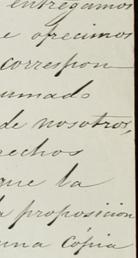 entregamos
e ofrecimos
correspon
sumado
de nosotros,
rechos
que la
la proposicion
una cópia